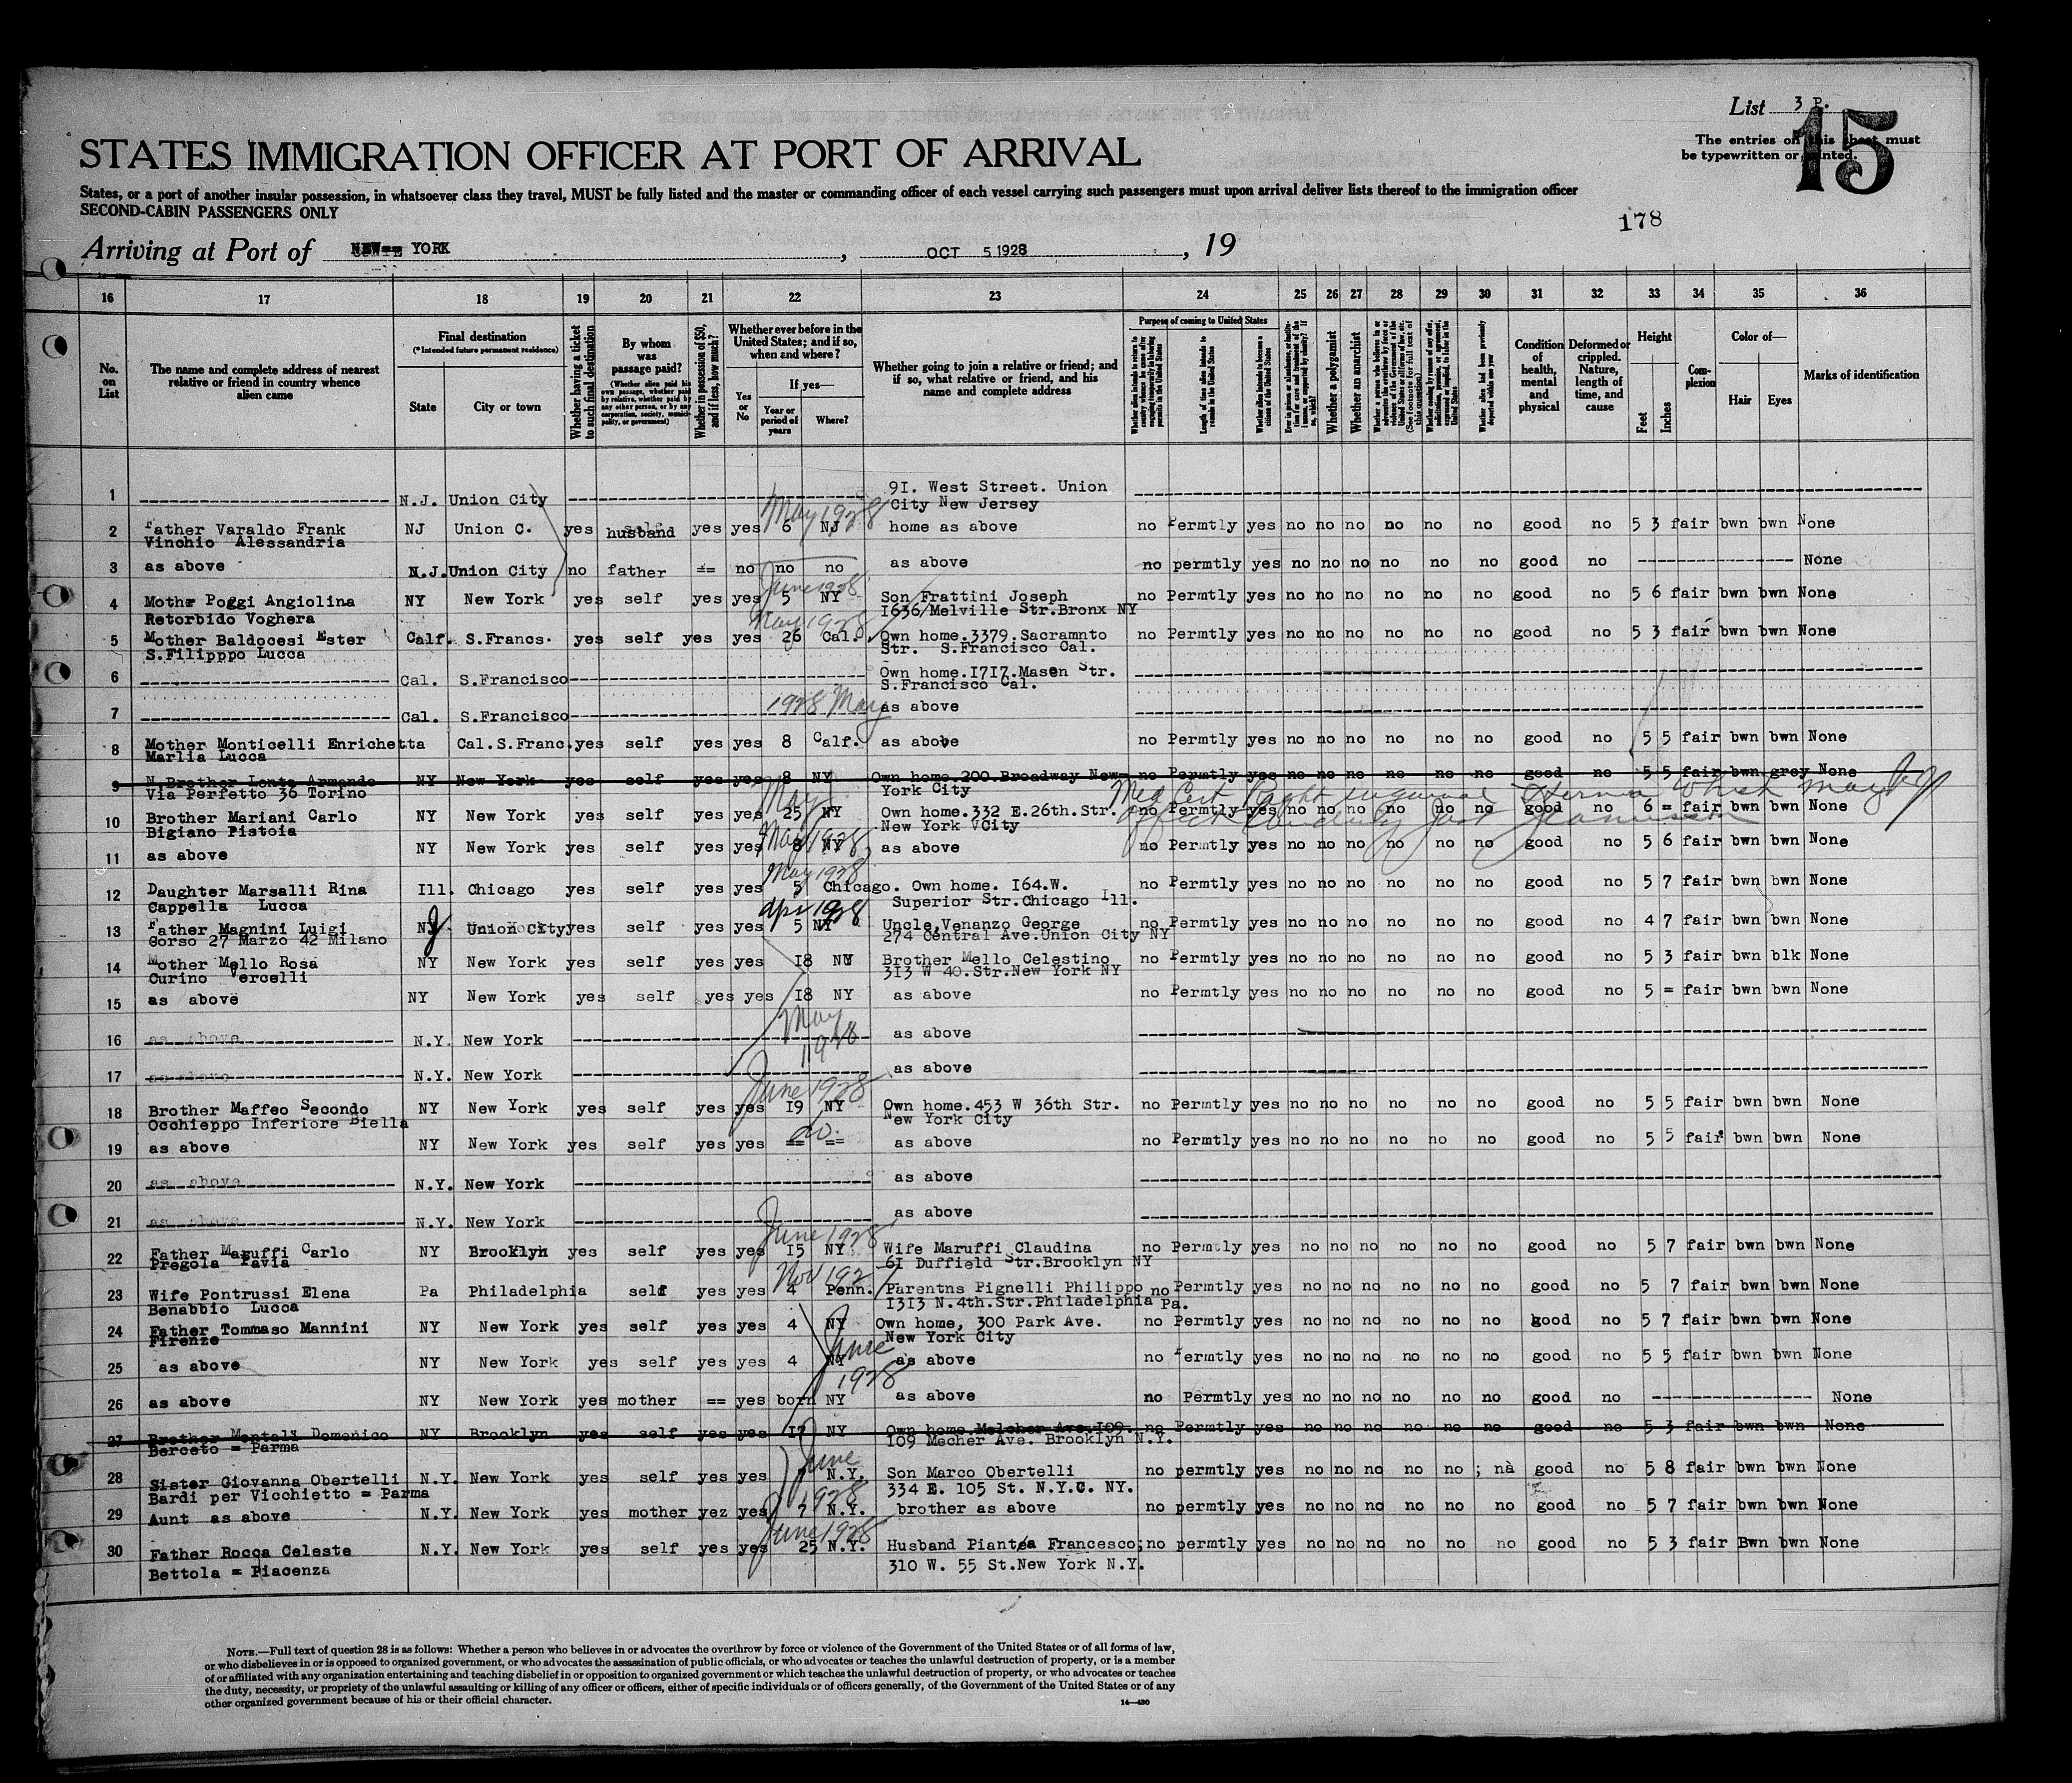 List 3 P.
15
The entries on this sheet must
be typewritten or printed.
STATES IMMIGRATION OFFICER AT PORT OF ARRIVAL
States, or a port of another insular possession, in whatsoever class they travel, MUST be fully listed and the master or commanding officer of each vessel carrying such passengers must upon arrival deliver lists thereof to the immigration officer
SECOND-CABIN PASSENGERS ONLY
178
Arriving at Port of NEW YORK , OCT 5 1928 , 19
16 17 18 19 20 21 22 23 24 25 26 27 28 29 30 31 32 33 34 35 36
No. on List
The name and complete address of nearest relative or friend in country whence alien came
Final destination
(*Intended future permanent residence)
State
City or town
Whether having a ticket to such final destination
By whom was passage paid?
(Whether alien paid his own passage, whether paid by relative, whether paid by any other person, or by any corporation, society, municipality, or government)
Whether in possession of $50, and if less, how much?
Whether ever before in the United States; and if so, when and where?
Yes or No
If yes—
Year or period of years
Where?
Whether going to join a relative or friend; and if so, what relative or friend, and his name and complete address
Purpose of coming to United States
Length of time alien intends to remain in the United States
Whether alien intends to become a citizen of the United States
Whether a polygamist
Whether an anarchist
Whether alien had been previously deported within one year
Condition of health, mental and physical
Deformed or crippled. Nature, length of time, and cause
Height
Feet
Inches
Complexion
Color of—
Hair
Eyes
Marks of identification
1 N.J. Union City 9I. West Street. Union
City New Jersey
May 1928
2 Father Varaldo Frank NJ Union C. yes husband yes yes 6 NJ home as above no Permtly yes no no no no no no good no 5 3 fair bwn bwn None
Vinchio Alessandria
3 as above N.J. Union City no father == no no no as above no permtly yes no no no no no no good no None
June 1928
4 Mothr Poggi Angiolina NY New York yes self yes yes 5 NY Son Frattini Joseph no Permtly yes no no no no no no good no 5 6 fair bwn bwn None
Retorbido Voghera I636 Melville Str.Bronx NY
May 1928
5 Mother Baldocesi Ester Calf. S.Francs. yes self yes yes 26 Cal. Own home.3379.Sacramnto no Permtly yes no no no no no no good no 5 3 fair bwn bwn None
S.Filipppo Lucca Str. S.Francisco Cal.
6 Cal. S.Francisco Own home.I7I7.Mason Str.
S.Francisco Cal.
7 Cal. S.Francisco 1928 May as above
8 Mother Monticelli Enrichetta Cal.S.Franc.yes self yes yes 8 Calf. as above no Permtly yes no no no no no no good no 5 5 fair bwn bwn None
Marlia Lucca
9 N.Brother Lente Armando NY New York yes self yes yes 8 NY Own home.200.Broadway New no Permtly yes no no no no no no good no 5 5 fair bwn grey None
Via Perfetto 36 Torino York City
Med Cert Right inguinal Hernia which may
May
10 Brother Mariani Carlo NY New York yes self yes yes 25 NY Own home.332 E.26th.Str. no Permtly yes no no no no no no good no 6 = fair bwn bwn None
Bigiano Pistoia New York VCity
May 1928
11 as above NY New York yes self yes yes 8 NY as above no Permtly yes no no no no no no good no 5 6 fair bwn bwn None
May 1928
12 Daughter Marsalli Rina Ill. Chicago yes self yes yes 5 Chicago. Own home. I64.W. no Permtly yes no no no no no no good no 5 7 fair bwn bwn None
Cappella Lucca Superior Str.Chicago Ill.
Apr 1928
13 Father Magnini Luigi NJ Union City yes self yes yes 5 NY Uncle,Venanzo George no Permtly yes no no no no no no good no 4 7 fair bwn bwn None
Corso 27 Marzo 42 Milano 274 Central Ave.Union City NY
14 Mother Mello Rosa NY New York yes self yes yes I8 NY Brother Mello Celestino no Permtly yes no no no no no no good no 5 3 fair bwn blk None
Curino Vercelli 3I3 W 40.Str.New York NY
15 as above NY New York yes self yes yes I8 NY as above no Permtly yes no no no no no no good no 5 = fair bwn bwn None
May 1928
16 as above N.Y. New York as above
17 as above N.Y. New York as above
June 1928
18 Brother Maffeo Secondo NY New York yes self yes yes I9 NY Own home.453 W 36th Str. no Permtly yes no no no no no no good no 5 5 fair bwn bwn None
Occhieppo Inferiore Biella New York City
do.
19 as above NY New York yes self yes yes == == as above no Permtly yes no no no no no no good no 5 5 fair bwn bwn None
20 as above N.Y. New York as above
21 as above N.Y. New York as above
June 1928
22 Father Maruffi Carlo NY Brooklyn yes self yes yes I5 NY Wife Maruffi Claudina no Permtly yes no no no no no no good no 5 7 fair bwn bwn None
Pregola Pavia 6I Duffield Str.Brooklyn NY
Nov 192
23 Wife Pontrussi Elena Pa Philadelphia self yes yes 4 Penn. Parentns Pignelli Philippo no Permtly yes no no no no no no good no 5 7 fair bwn bwn None
Benabbio Lucca I3I3 N.4th.Str.Philadelphia Pa.
24 Father Tommaso Mannini NY New York yes self yes yes 4 NY Own home, 300 Park Ave. no Permtly yes no no no no no no good no 5 7 fair bwn bwn None
Firenze New York City
June 1928
25 as above NY New York yes self yes yes 4 NY as above no Permtly yes no no no no no no good no 5 5 fair bwn bwn None
26 as above NY New York yes mother == yes born NY as above no Permtly yes no no no no no no good no None
27 Brother Montali Domenico NY Brooklyn yes self yes yes I7 NY Own home Melcher Ave.I09. no Permtly yes no no no no no no good no 5 3 fair bwn bwn None
Berceto = Parma I09 Mecher Ave. Brooklyn N.Y.
June 1928
28 Sister Giovanna Obertelli N.Y. New York yes self yes yes N.Y. Son Marco Obertelli no permtly yes no no no no no ; nà good no 5 8 fair bwn bwn None
Bardi per Vicchietto = Parma 334 E. 105 St. N.Y.C. NY.
29 Aunt as above N.Y. New York yes mother yez yes 7 N.Y. brother as above no permtly yes no no no no no no good no 5 7 fair bwn bwn None
June 1928
30 Father Rocca Celeste N.Y. New York yes self yes yes 25 N.Y. Husband Piantea Francesco; no permtly yes no no no no no no good no 5 3 fair Bwn bwn None
Bettola = Piacenza 310 W. 55 St.New York N.Y.
NOTE.—Full text of question 28 is as follows: Whether a person who believes in or advocates the overthrow by force or violence of the Government of the United States or of all forms of law,
or who disbelieves in or is opposed to organized government, or who advocates the assassination of public officials, or who advocates or teaches the unlawful destruction of property, or is a member
of or affiliated with any organization entertaining and teaching disbelief in or opposition to organized government or which teaches the unlawful destruction of property, or who advocates or teaches
the duty, necessity, or propriety of the unlawful assaulting or killing of any officer or officers, either of specific individuals or of officers generally, of the Government of the United States or of any
other organized government because of his or their official character.
14—430